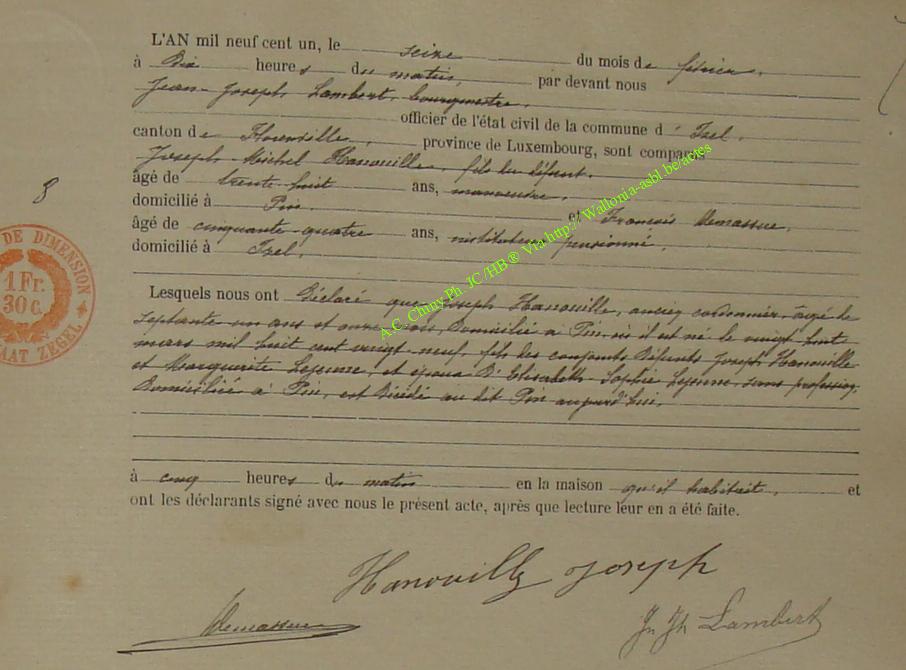 L'AN mil neuf cent un, le seize du mois de février,
à Dix heures du matin, par devant nous
Jean-Joseph Lambert, bourgmestre,
officier de l'état civil de la commune d'Izel,
canton de Florenville, province de Luxembourg, sont comparus
Joseph-Michel Hanouille, fils du défunt,
âgé de trente-huit ans, manoeuvre,
domicilié à Pin et François Demasue,
âgé de cinquante-quatre ans, instituteur pensionné,
domicilié à Izel,
8
DE DIMENSION
1 Fr.
30 c.
ZEGEL
A.C. Chiny Ph. JC /HB ® Via http://Wallonia-asbl.be/actes
Lesquels nous ont Déclaré que Joseph Hanouille, ancien cordonnier, âgé de
septante un ans et onze mois, Domicilié à Pin, où il est né le vingt huit
mars mil huit cent vingt-neuf, fils des conjoints Défunts Joseph Hanouille
et Marguerite Lejeune, et époux D'Elisabeth Sophie Lejeune, sans profession,
Domiciliée à Pin, est Décédé au dit Pin aujourd'hui,
à cinq heures du matin en la maison qu'il habitait, et
ont les déclarants signé avec nous le présent acte, après que lecture leur en a été faite.
Hanouille Joseph
Jn Jh Lambert